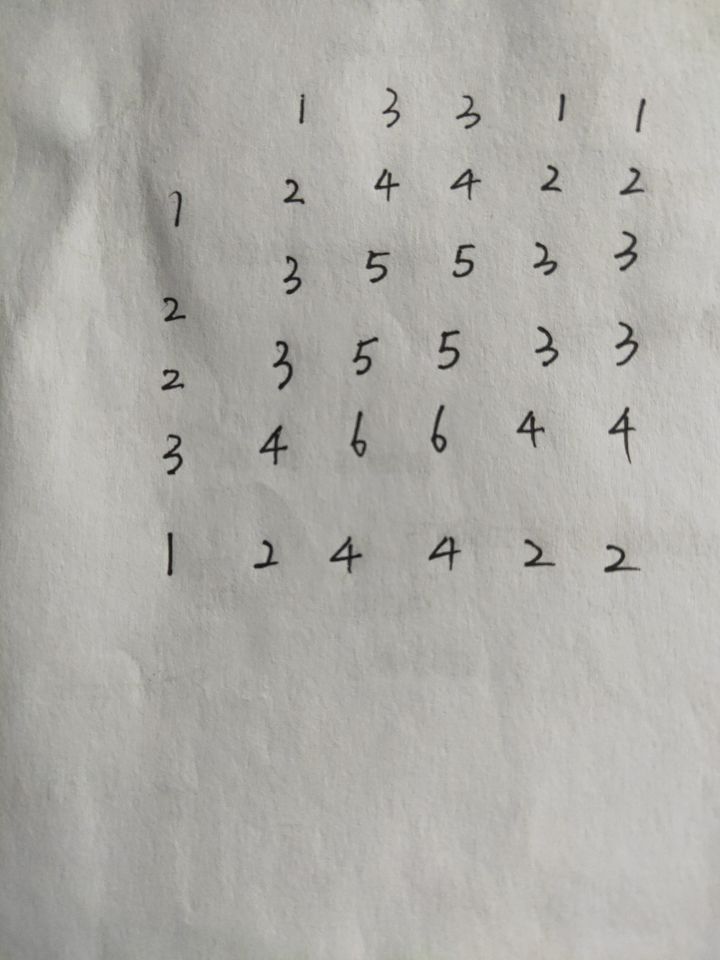 1 3 3 1 1
1 2 4 4 2 2
2 3 5 5 3 3
2 3 5 5 3 3
3 4 6 6 4 4
1 2 4 4 2 2